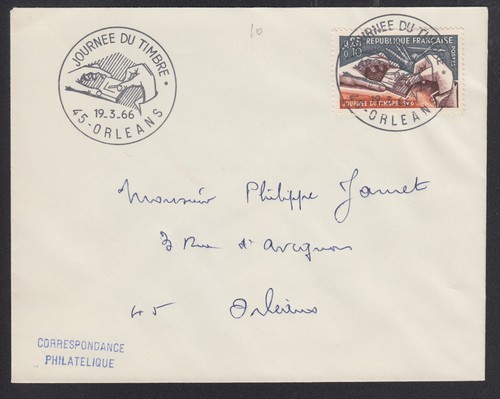 JOURNEE DU TIMBRE
19.3.66
45-ORLEANS
10
JOURNEE DU TIMBRE
0,25
+0,10
REPUBLIQUE FRANÇAISE
POSTES
JOURNEE DU TIMBRE 1966
ORLEANS
Monsieur Philippe Jamet
3 Rue d'Avignon
45 Orléans
CORRESPONDANCE
PHILATELIQUE